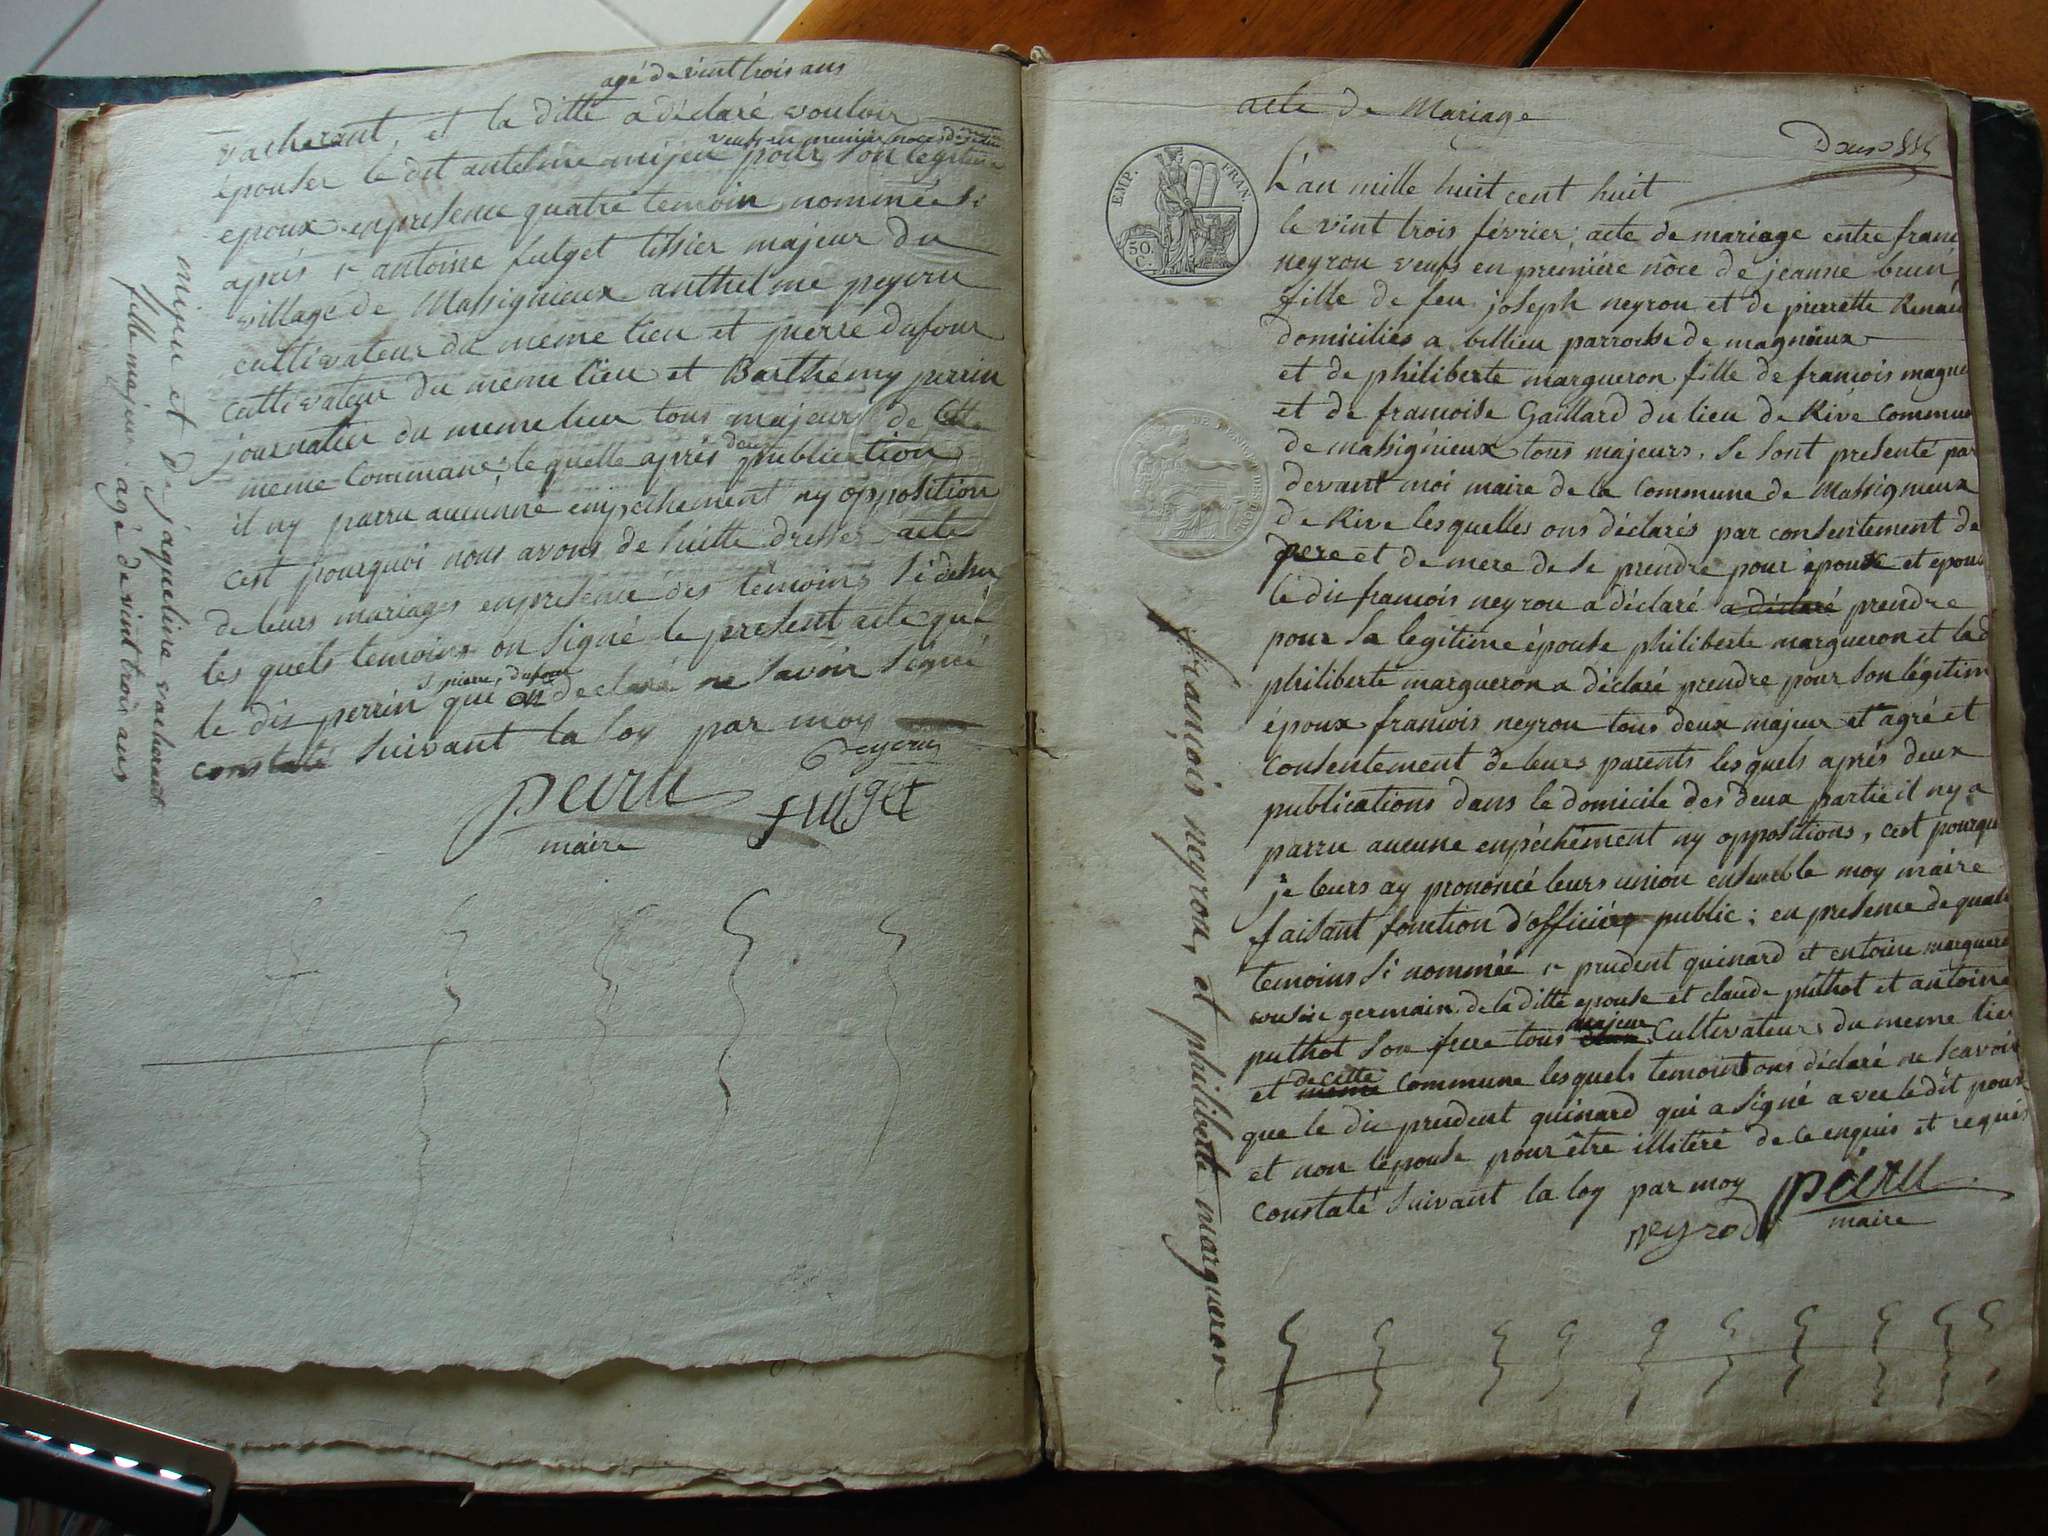 agé de vint trois ans
vacherant, et la ditte a déclaré vouloir
veufs en premier noce de
épouser le dit antelme mijeu pour son legitime
epoux en presence quatre temoin nommée si
après sr antoine fulget tissier majeur du
village de Massignieux anthelme peyeru
cultivateur du meme lieu et pierre dufour
cultivateur du meme lieu et Barthemy perrin
journalier du meme lieu tous majeur de cette
meme Commune; le quelle aprés deux publication
il ny parru aucunne empechement ny opposition
cest pourquoi nous avons de suitte dresser acte
de leurs mariages en presence des temoins si desu
les quels temoins on signé le present acte que
le dit perrin et pierre dufour qui on declaré ne savoir signé
constaté suivant la loy par moy
peyeru
peiru
fulget
maire
mijeu et de jaqueline vacherant
fille majeur agé de vint trois ans
acte de Mariage
Deux
EMP. FRAN.
50 C.
L'an mille huit cent huit
le vint trois février; acte de mariage entre franc
neyrou veufs en premiére nôce de jeanne
fille de feu joseph neyrou et de pierrette Renau
domicilies a billieu parroise de magnieux
et de philiberte margueron fille de francois
et de francoise Gaillard du lieu de Rive Commune
de massignieux tous majeurs, Se sont presenté par
devant moi maire de la Commune de Massignieux
de Rive lesquelles ons déclarés par consentement de
pere et de mere de se prendre pour épouse et epou
le dit francois neyrou a déclaré a déclaré prendre
pour sa legitime épouse philiberte margueron et lad
philiberte margueron a déclaré prendre pour son légitim
époux francois neyrou tous deux majeur et agré et
Consentement de leurs parents lesquels aprés deux
publications dans le domicile des deux partie il ny a
parru aucune enpéchément ny oppositions, cest pourqu
je leurs ay prononcé leurs union ensemble moy maire
faisant fonction d'officier public; en presence de quatre
temoins si nommée sr prudent quinard et antoine marguero
cousin germain de la ditte epouse et claude puthot et antoine
puthot son frere tous majeur Cultivateurs du meme lieu
et meme de cette commune lesquels temoins ons déclaré ne scavoir
que le dit prudent quinard qui a signé avec le dit poux
et non lepouse pour être illitéré de ce enquis et requis
Constaté suivant la loy par moy peiru
neyrod maire
françois neyrou, et philiberte margueron